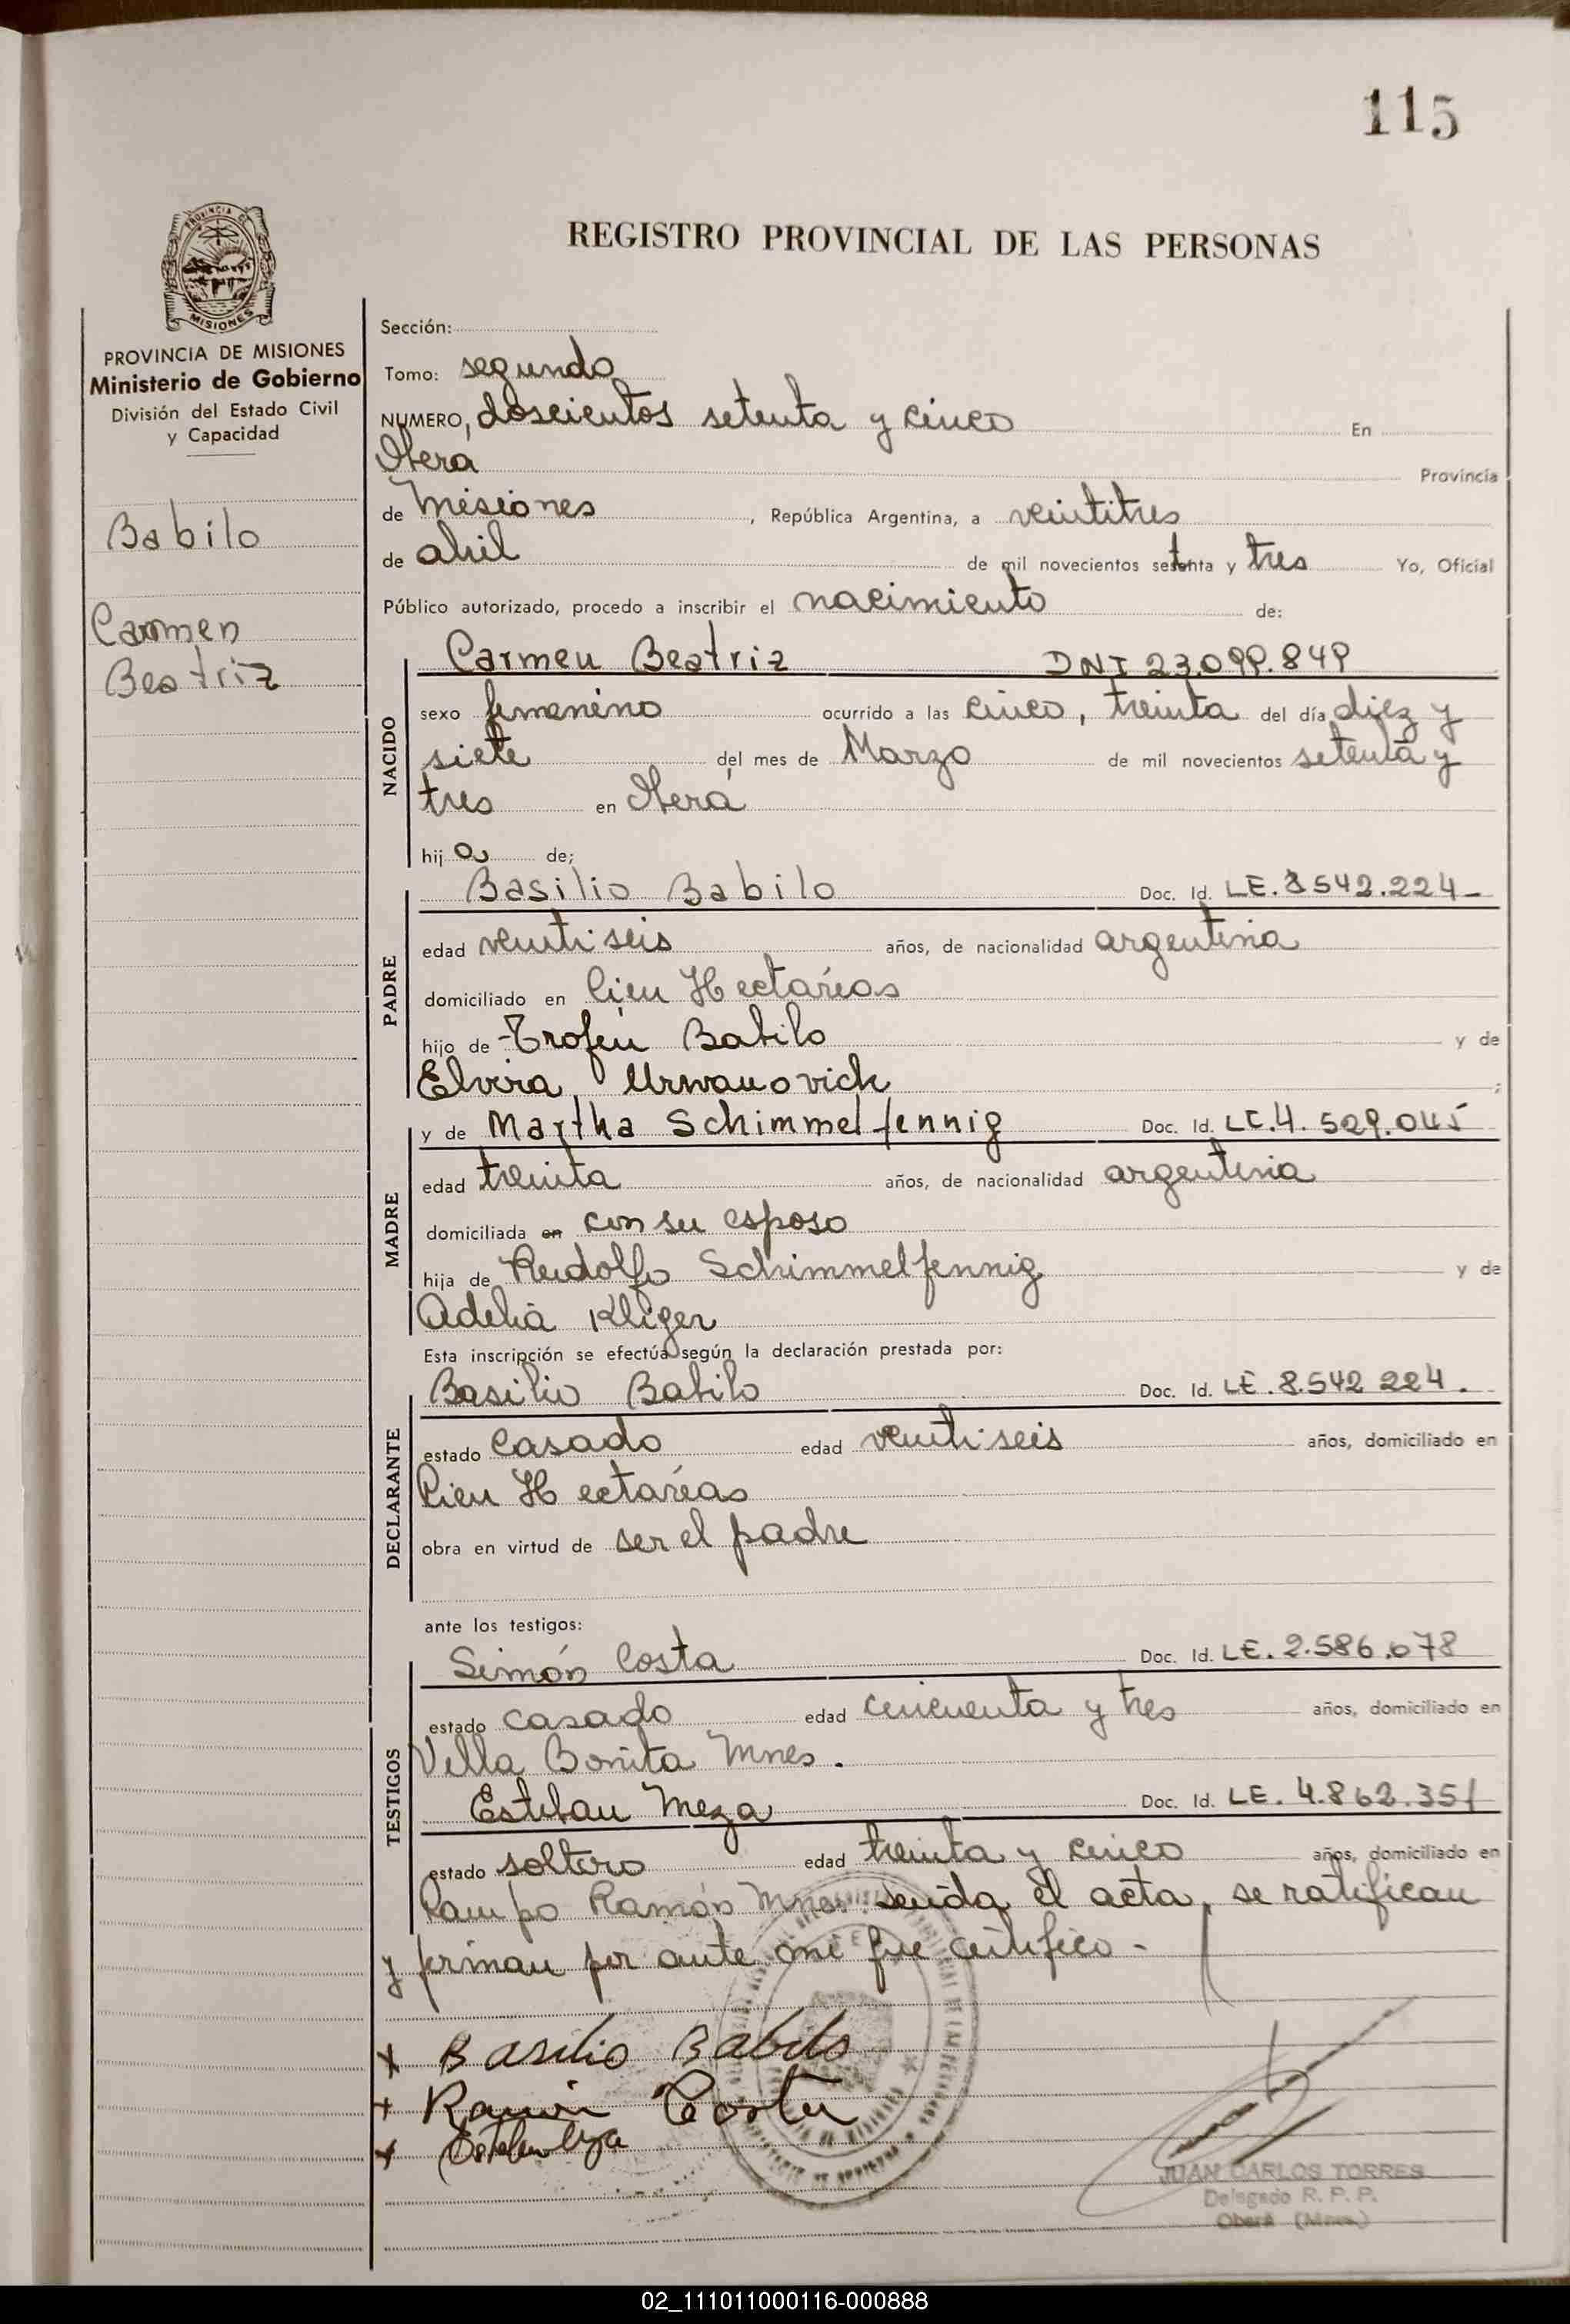 115
REGISTRO PROVINCIAL DE LAS PERSONAS
PROVINCIA DE
MISIONES
PROVINCIA DE MISIONES
Ministerio de Gobierno
División del Estado Civil
y Capacidad
Babilo
Carmen
Beatriz
Sección:
Tomo: segundo
NUMERO, doscientos setenta y cinco En
Oberá Provincia
de Misiones, República Argentina, a veintitres
de abril de mil novecientos setenta y tres Yo, Oficial
Público autorizado, procedo a inscribir el nacimiento de:
NACIDO
Carmen Beatriz DNI 23.099.849
sexo femenino ocurrido a las cinco, treinta del día diez y
siete del mes de Marzo de mil novecientos setenta y
tres en Oberá
hij a de;
PADRE
Basilio Babilo Doc. Id. LE. 8542.224-
edad veinti seis años, de nacionalidad argentina
domiciliado en Cien Hectaréas
hijo de Trofín Babilo y de
Elvira Urwanovich;
MADRE
y de Martha Schimmelfennig Doc. Id. LC.4.529.045
edad treinta años, de nacionalidad argentina
domiciliada en con su esposo
hija de Rudolfo Schimmelfennig y de
Adelia Kliger
Esta inscripción se efectúa según la declaración prestada por:
DECLARANTE
Basilio Babilo Doc. Id. LE.8.542 224.
estado casado edad veinti seis años, domiciliado en
Cien Hectaréas
obra en virtud de ser el padre
ante los testigos:
TESTIGOS
Simón Costa Doc. Id. LE.2.586.678
estado casado edad cincuenta y tres años, domiciliado en
Villa Bonita Mnes.
Esteban Meza Doc. Id. LE. 4.862.351
estado soltero edad treinta y cinco años, domiciliado en
Campo Ramón Mnes. Leida el acta, se ratifican
y firman por ante mi que certifico-
x Basilio Babilo
+ Ramón Costa
x
JUAN CARLOS TORRES
Delegado R. P. P.
Oberá (Mnes.)
02_111011000116-000888